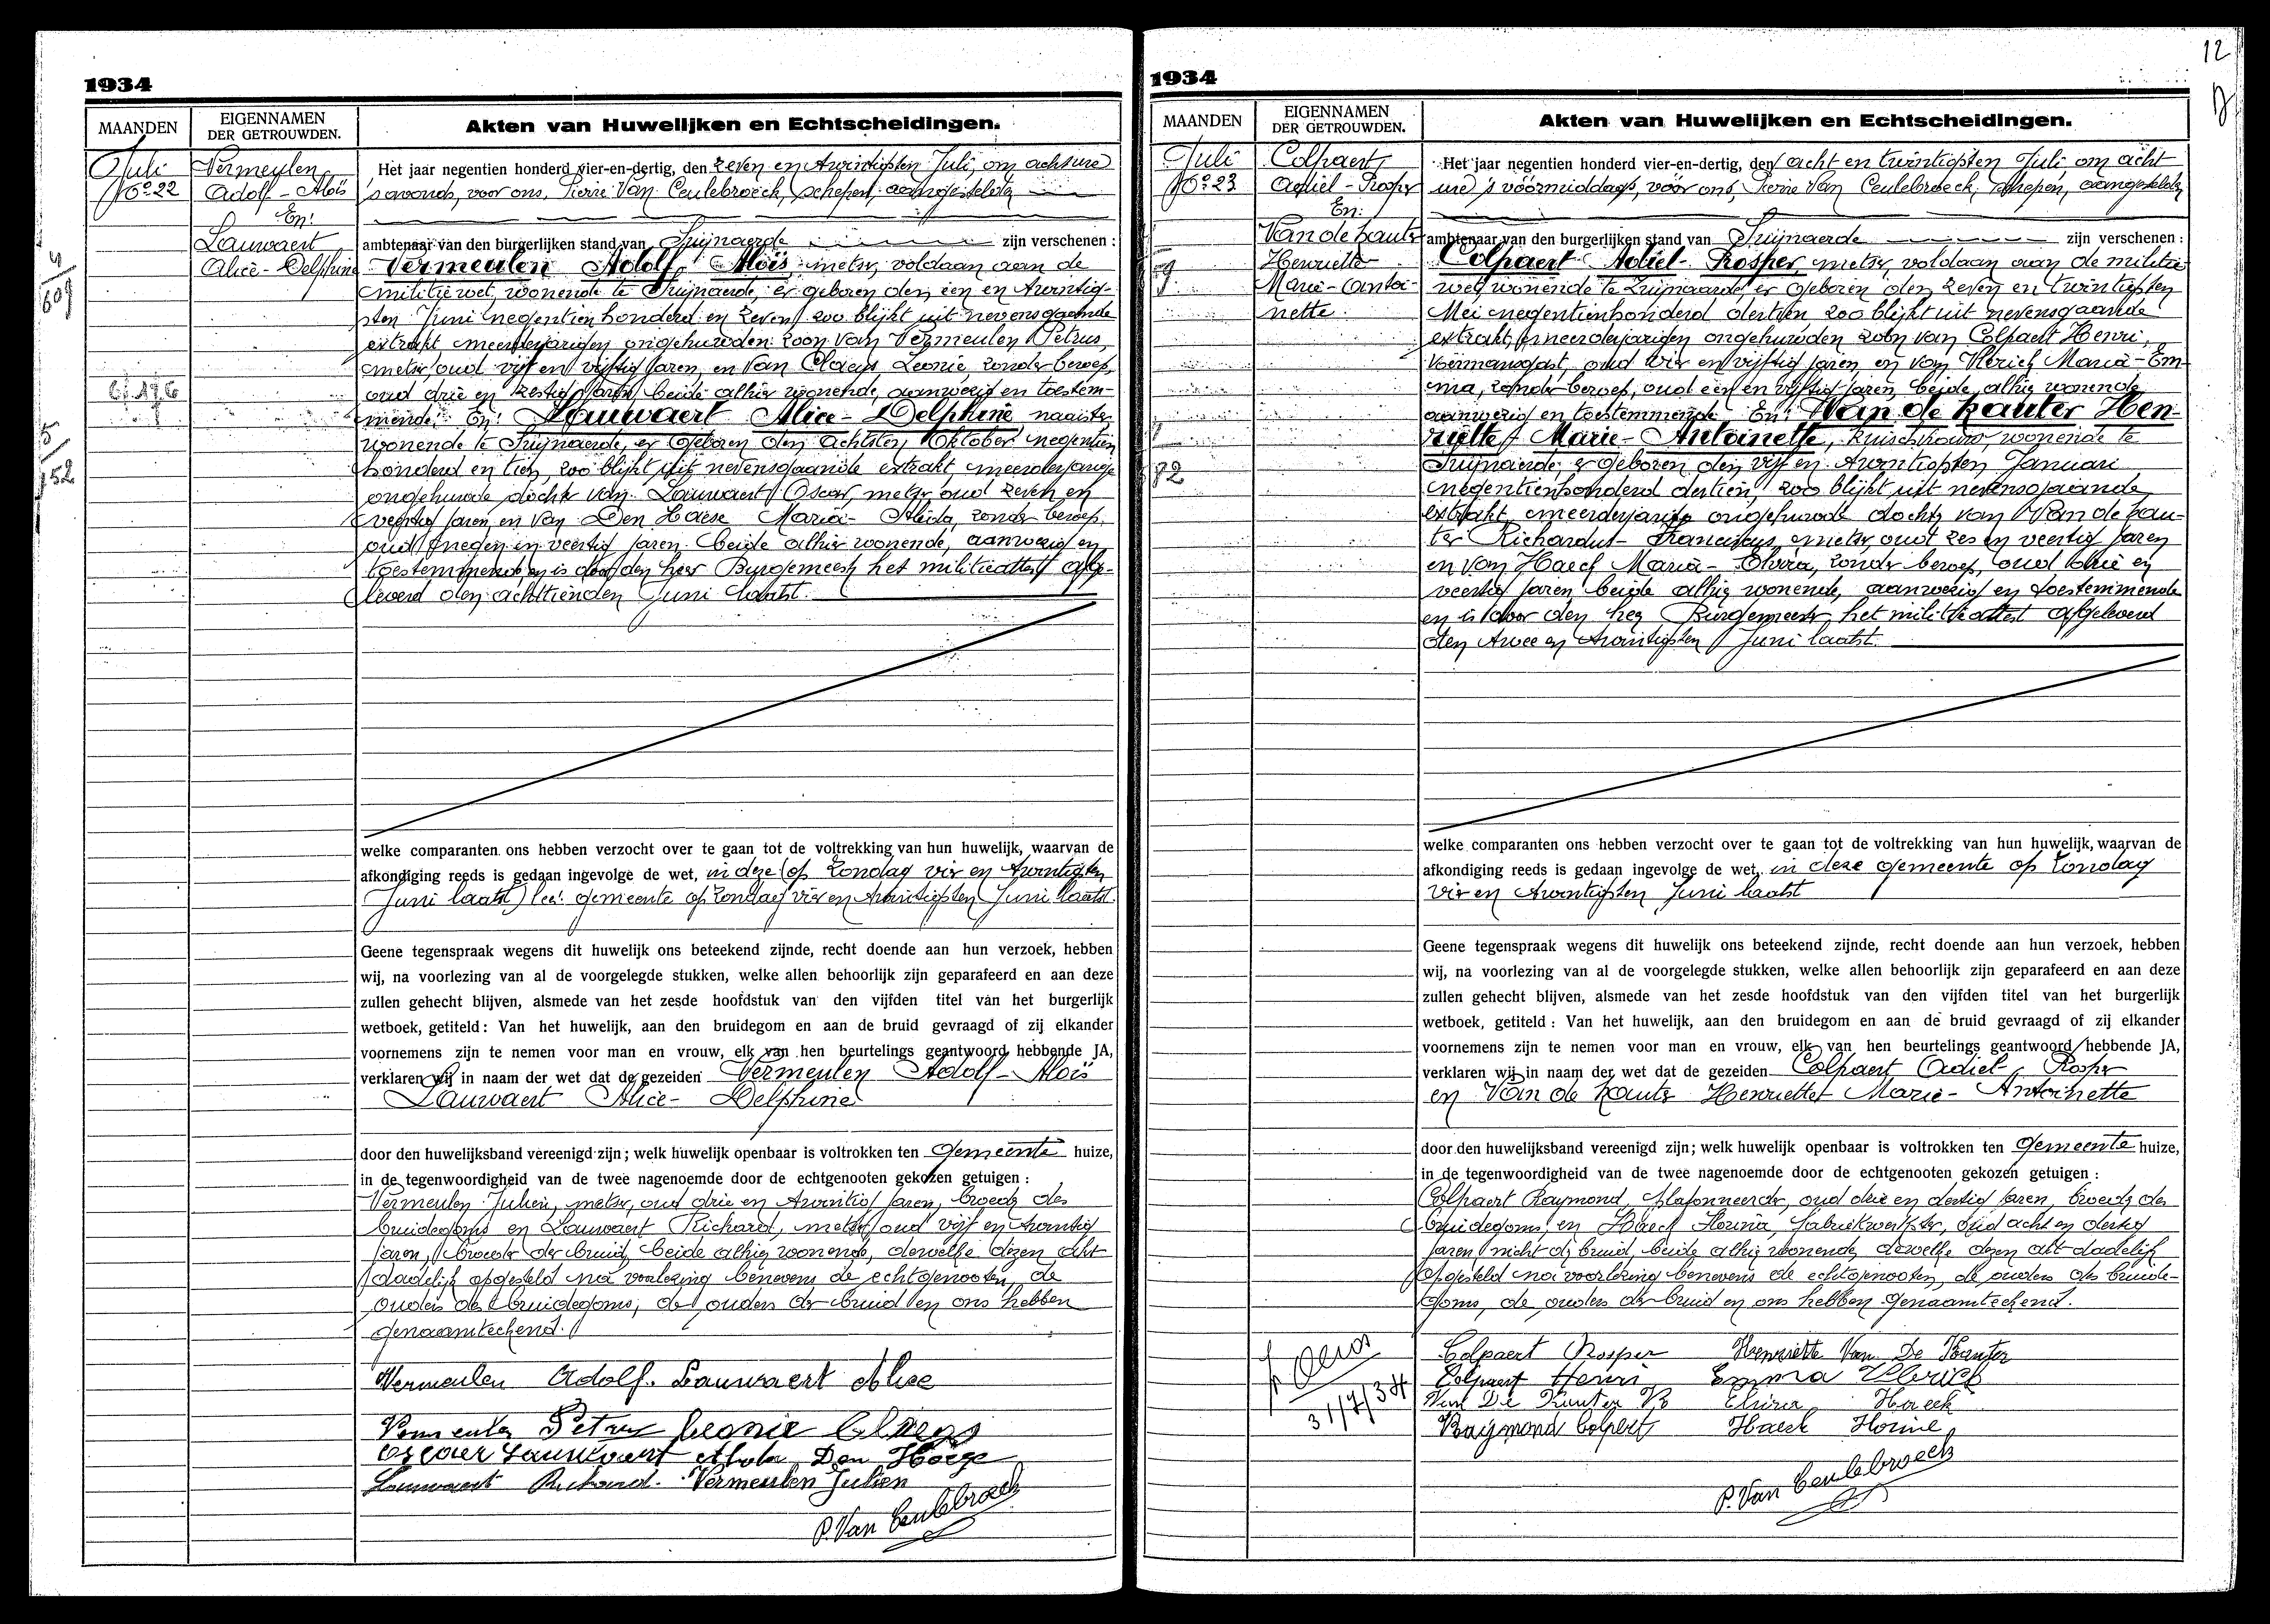 1934
MAANDEN
EIGENNAMEN
DER GETROUWDEN.
Akten van Huwelijken en Echtscheidingen.
Juli
No 22
Vermeulen
Adolf - Aloïs
En:
Lauwaert
Alice - Delphine
Het jaar negentien honderd vier-en-dertig, den zeven en twintigsten Juli, om acht ure
's avonds, voor ons, Pierre Van Ceulebroeck, schepen, aangestelden
ambtenaar van den burgerlijken stand van Zwijnaerde zijn verschenen :
Vermeulen Adolf Aloïs, metser, voldaan aan de
militiewet, wonende te Zwijnaerde, er geboren den een en twintig-
sten Juni negentienhonderd en zeven, zoo blijkt uit nevensgaande
extrakt meerderjarigen ongehuwden zoon van Vermeulen Petrus,
metser, oud vijf en vijftig jaren, en van Claeys Leonie, zonder beroep,
oud drie en zestig jaren beide alhier wonende, aanwezig en toestem-
mende. En: Lauwaert Alice - Delphine, naaister,
wonende te Zwijnaerde, er geboren den achtsten Oktober negentien
honderd en tien, zoo blijkt uit nevensgaande extrakt, meerderjarige
ongehuwde dochter van Lauwaert Oscar, metser, oud zeven en
veertig jaren, en van Den Haese Maria - Aleida, zonder beroep,
oud negen en veertig jaren beide alhier wonende, aanwezig en
toestemmende, en is door den heer Burgemeester het militieattest afge-
leverd den achttienden Juni laatst.
welke comparanten ons hebben verzocht over te gaan tot de voltrekking van hun huwelijk, waarvan de
afkondiging reeds is gedaan ingevolge de wet, in deze (op Zondag vier en twintigsten
Juni laatst) lees: gemeente op Zondag vier en twintigsten Juni laatst.
Geene tegenspraak wegens dit huwelijk ons beteekend zijnde, recht doende aan hun verzoek, hebben
wij, na voorlezing van al de voorgelegde stukken, welke allen behoorlijk zijn geparafeerd en aan deze
zullen gehecht blijven, alsmede van het zesde hoofdstuk van den vijfden titel van het burgerlijk
wetboek, getiteld : Van het huwelijk, aan den bruidegom en aan de bruid gevraagd of zij elkander
voornemens zijn te nemen voor man en vrouw, elk van hen beurtelings geantwoord hebbende JA,
verklaren wij in naam der wet dat de gezeiden Vermeulen Adolf - Aloïs
Lauwaert Alice - Delphine
door den huwelijksband vereenigd zijn ; welk huwelijk openbaar is voltrokken ten Gemeente huize,
in de tegenwoordigheid van de twee nagenoemde door de echtgenooten gekozen getuigen :
Vermeulen Julien, metser, oud drie en twintig jaren, broeder des
bruidegoms en Lauwaert Richard, metser, oud vijf en twintig
jaren, broeder der bruid, beide alhier wonende, dewelke dezen akt
dadelijk opgesteld na voorlezing benevens de echtgenooten, de
ouders des bruidegoms, de ouders der bruid en ons hebben
genaamteekend.
Vermeulen Adolf. Lauwaert Alice
Vermeulen Petrus Leonie Claeys
Oscaer Lauwaert Den Haeze
Lauwaert Richard. Vermeulen Julien
P. Van Ceulebroeck
12
1934
MAANDEN
EIGENNAMEN
DER GETROUWDEN.
Akten van Huwelijken en Echtscheidingen.
Juli
No 23
Colpaert
Adiel - Prosper
En:
Van de Kauter
Henriette
Marie - Antoi-
nette
Het jaar negentien honderd vier-en-dertig, den acht en twintigsten Juli, om acht
ure 's voormiddags, voor ons, Pierre Van Ceulebroeck, schepen, aangestelden
ambtenaar van den burgerlijken stand van Zwijnaerde zijn verschenen :
Colpaert Adiel - Prosper, metser, voldaan aan de militie
wet, wonende te Zwijnaerde, er geboren den zeven en twintigsten
Mei negentienhonderd dertien, zoo blijkt uit nevensgaande
extrakt, meerderjarigen ongehuwden zoon van Colpaert Henri,
voermansgast, oud vier en vijftig jaren, en van Vlerick Maria - Em-
ma, zonder beroep, oud een en vijftig jaren, beide alhier wonende
aanwezig en toestemmende. En: Van de Kauter Hen-
riette Marie - Antoinette, kuischvrouw, wonende te
Zwijnaerde, er geboren den vijf en twintigsten Januari
negentienhonderd dertien, zoo blijkt uit nevensgaande
extrakt, meerderjarige ongehuwde dochter van Van de Kau-
ter Richardus - Franciscus, metser, oud zes en veertig jaren
en van Haeck Maria - Elvira, zonder beroep, oud drie en
veertig jaren, beide alhier wonende, aanwezig en toestemmende
en is door den heer Burgemeester het militieattest afgeleverd
den twee en twintigsten Juni laatst.
welke comparanten ons hebben verzocht over te gaan tot de voltrekking van hun huwelijk, waarvan de
afkondiging reeds is gedaan ingevolge de wet, in deze gemeente op Zondag
vier en twintigsten Juni laatst
Geene tegenspraak wegens dit huwelijk ons beteekend zijnde, recht doende aan hun verzoek, hebben
wij, na voorlezing van al de voorgelegde stukken, welke allen behoorlijk zijn geparafeerd en aan deze
zullen gehecht blijven, alsmede van het zesde hoofdstuk van den vijfden titel van het burgerlijk
wetboek, getiteld : Van het huwelijk, aan den bruidegom en aan de bruid gevraagd of zij elkander
voornemens zijn te nemen voor man en vrouw, elk van hen beurtelings geantwoord hebbende JA,
verklaren wij in naam der wet dat de gezeiden Colpaert Adiel - Prosper
en Van de Kauter Henriette Marie - Antoinette
door den huwelijksband vereenigd zijn ; welk huwelijk openbaar is voltrokken ten Gemeente huize,
in de tegenwoordigheid van de twee nagenoemde door de echtgenooten gekozen getuigen :
Colpaert Raymond, plafonneerder, oud drie en dertig jaren, broeder des
bruidegoms, en Haeck Horina, fabriekwerkster, oud acht en dertig
jaren nicht der bruid, beide alhier wonende, dewelke dezen akt dadelijk
opgesteld na voorlezing benevens de echtgenooten, de ouders des bruide-
goms, de ouders der bruid en ons hebben genaamteekend.
31/7/34
Colpaert Prosper Henriette Van De Kauter
Colpaert Henri Emma Vlerick
Van De Kauter R Elvira Haeck
Raymond Colpert Haeck Horine
P. Van Ceulebroeck